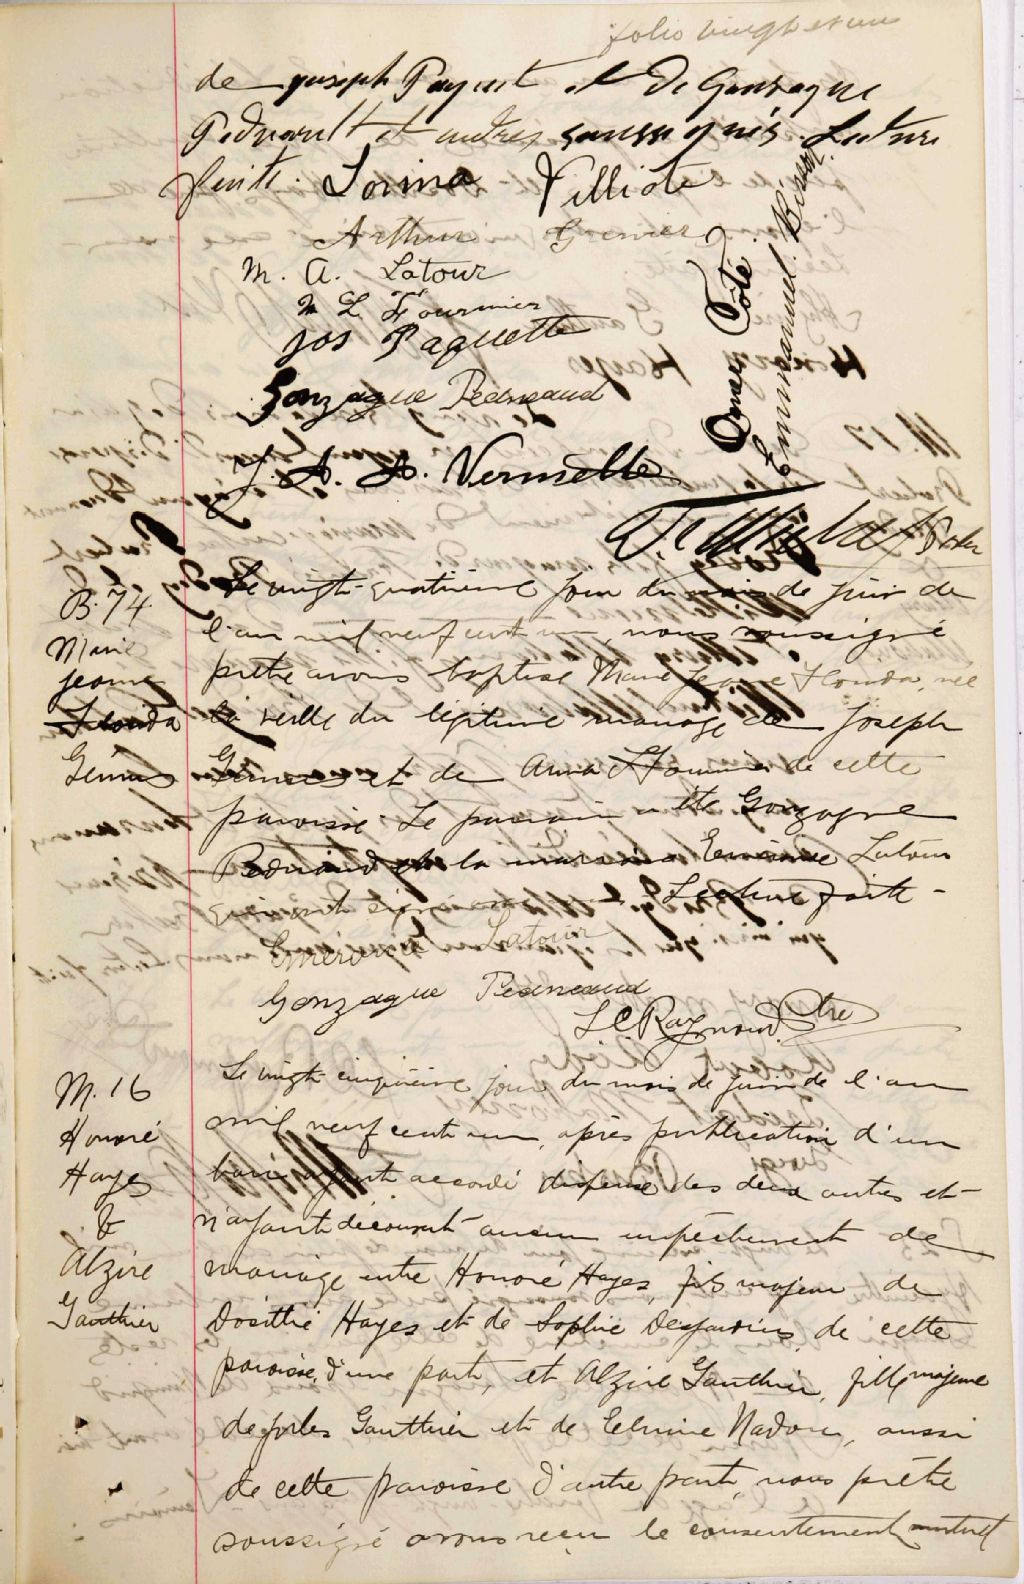 folio vingt et un
de joseph Payuet et de Gonzague
Pednault et autres soussignés. Lecture
faite. Lorina Villiote
Arthur Grenier
M. A. Latour
M L Fournier
Jos Paquette
Gonzague Pedneaud
J. A. A. Vermette
Omer Côté
Emmanuel Bisson
Ptre
B. 74
Marie
Jeanne
Flonda
Le vingt-quatrième jour du mois de juin de
l'an mil neuf cent un, nous soussigné
prêtre avons baptisé Marie Jeanne Flonda, née
la veille du légitime mariage de Joseph
et de Anna de cette
paroisse. Le parrain a été Gonzague
Pednaud et la marraine Emérence Latour
qui ont signé Lecture faite -
Emérence Latour
Gonzague Pedneaud
Ptre
M. 16
Honoré
Hayes
&
Alzire
Gauthier
Le vingt cinquième jour du mois de juin de l'an
mil neuf cent un, après publication d'un
banc ayant accordé dispense des deux autres et
n'ayant découvert aucun empêchement de
mariage entre Honoré Hayes, fils majeur de
Dosithé Hayes et de Sophie Desjardins, de cette
paroisse, d'une part, et Alzire Gauthier, fille majeure
de Gauthier et de Nadon, aussi
de cette paroisse d'autre part, nous prêtre
soussigné avons reçu le consentement mutuel